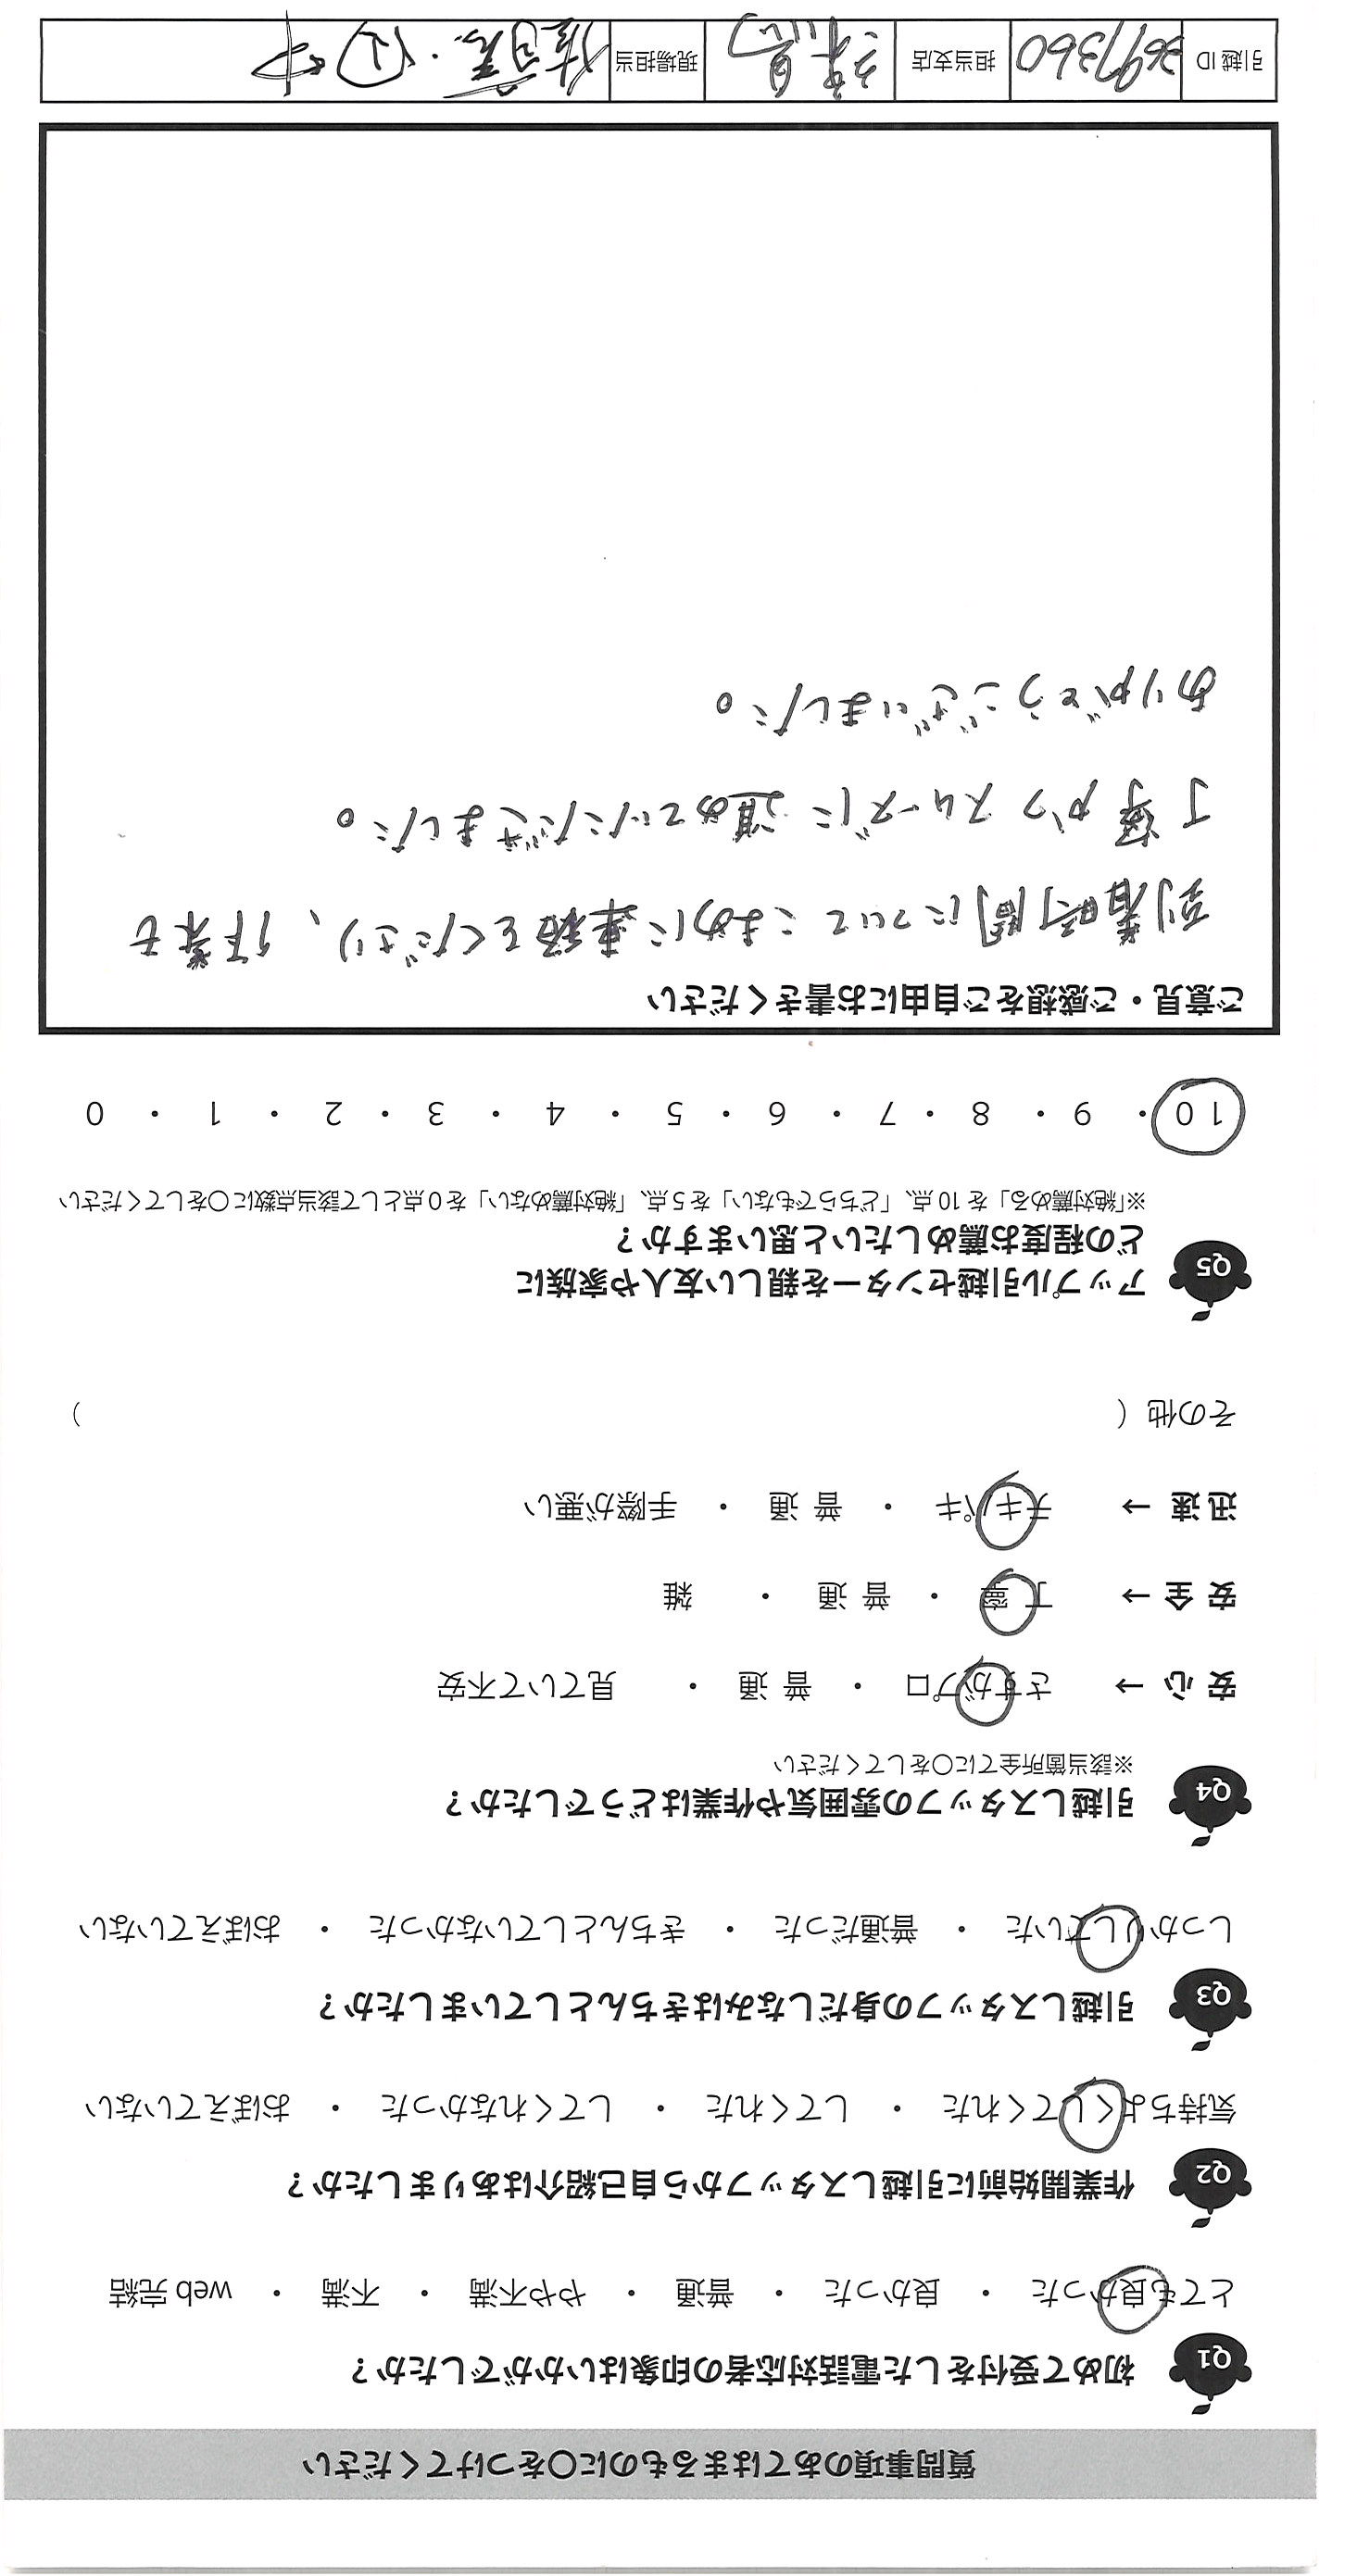 質問事項のあてはまるものに〇をつけてください
Q1 初めて受付をした電話対応者の印象はいかがでしたか？
とても良かった ・ 良かった ・ 普通 ・ やや不満 ・ 不満 ・ web 完結
Q2 作業開始前に引越しスタッフから自己紹介はありましたか？
気持ちよくしてくれた ・ してくれた ・ してくれなかった ・ おぼえていない
Q3 引越しスタッフの身だしなみはきちんとしていましたか？
しっかりしていた ・ 普通だった ・ きちんとしていなかった ・ おぼえていない
Q4 引越しスタッフの雰囲気や作業はどうでしたか？
※該当箇所全てに〇をしてください
安 心 → さすがプロ ・ 普 通 ・ 見ていて不安
安 全 → 丁 寧 ・ 普 通 ・ 雑
迅 速 → テキパキ ・ 普 通 ・ 手際が悪い
その他（ ）
Q5 アップル引越センターを親しい友人や家族に
どの程度お薦めしたいと思いますか？
※「絶対薦める」を 10 点、「どちらでもない」を 5 点、「絶対薦めない」を 0 点として該当点数に〇をしてください
10 ・ 9 ・ 8 ・ 7 ・ 6 ・ 5 ・ 4 ・ 3 ・ 2 ・ 1 ・ 0
ご意見・ご感想をご自由にお書きください
到着時間について こまめに連絡をくださり、作業も
丁寧かつスムーズに進めていただきました。
ありがとうございました。
引越 ID 3697360 担当支店 練馬 現場担当